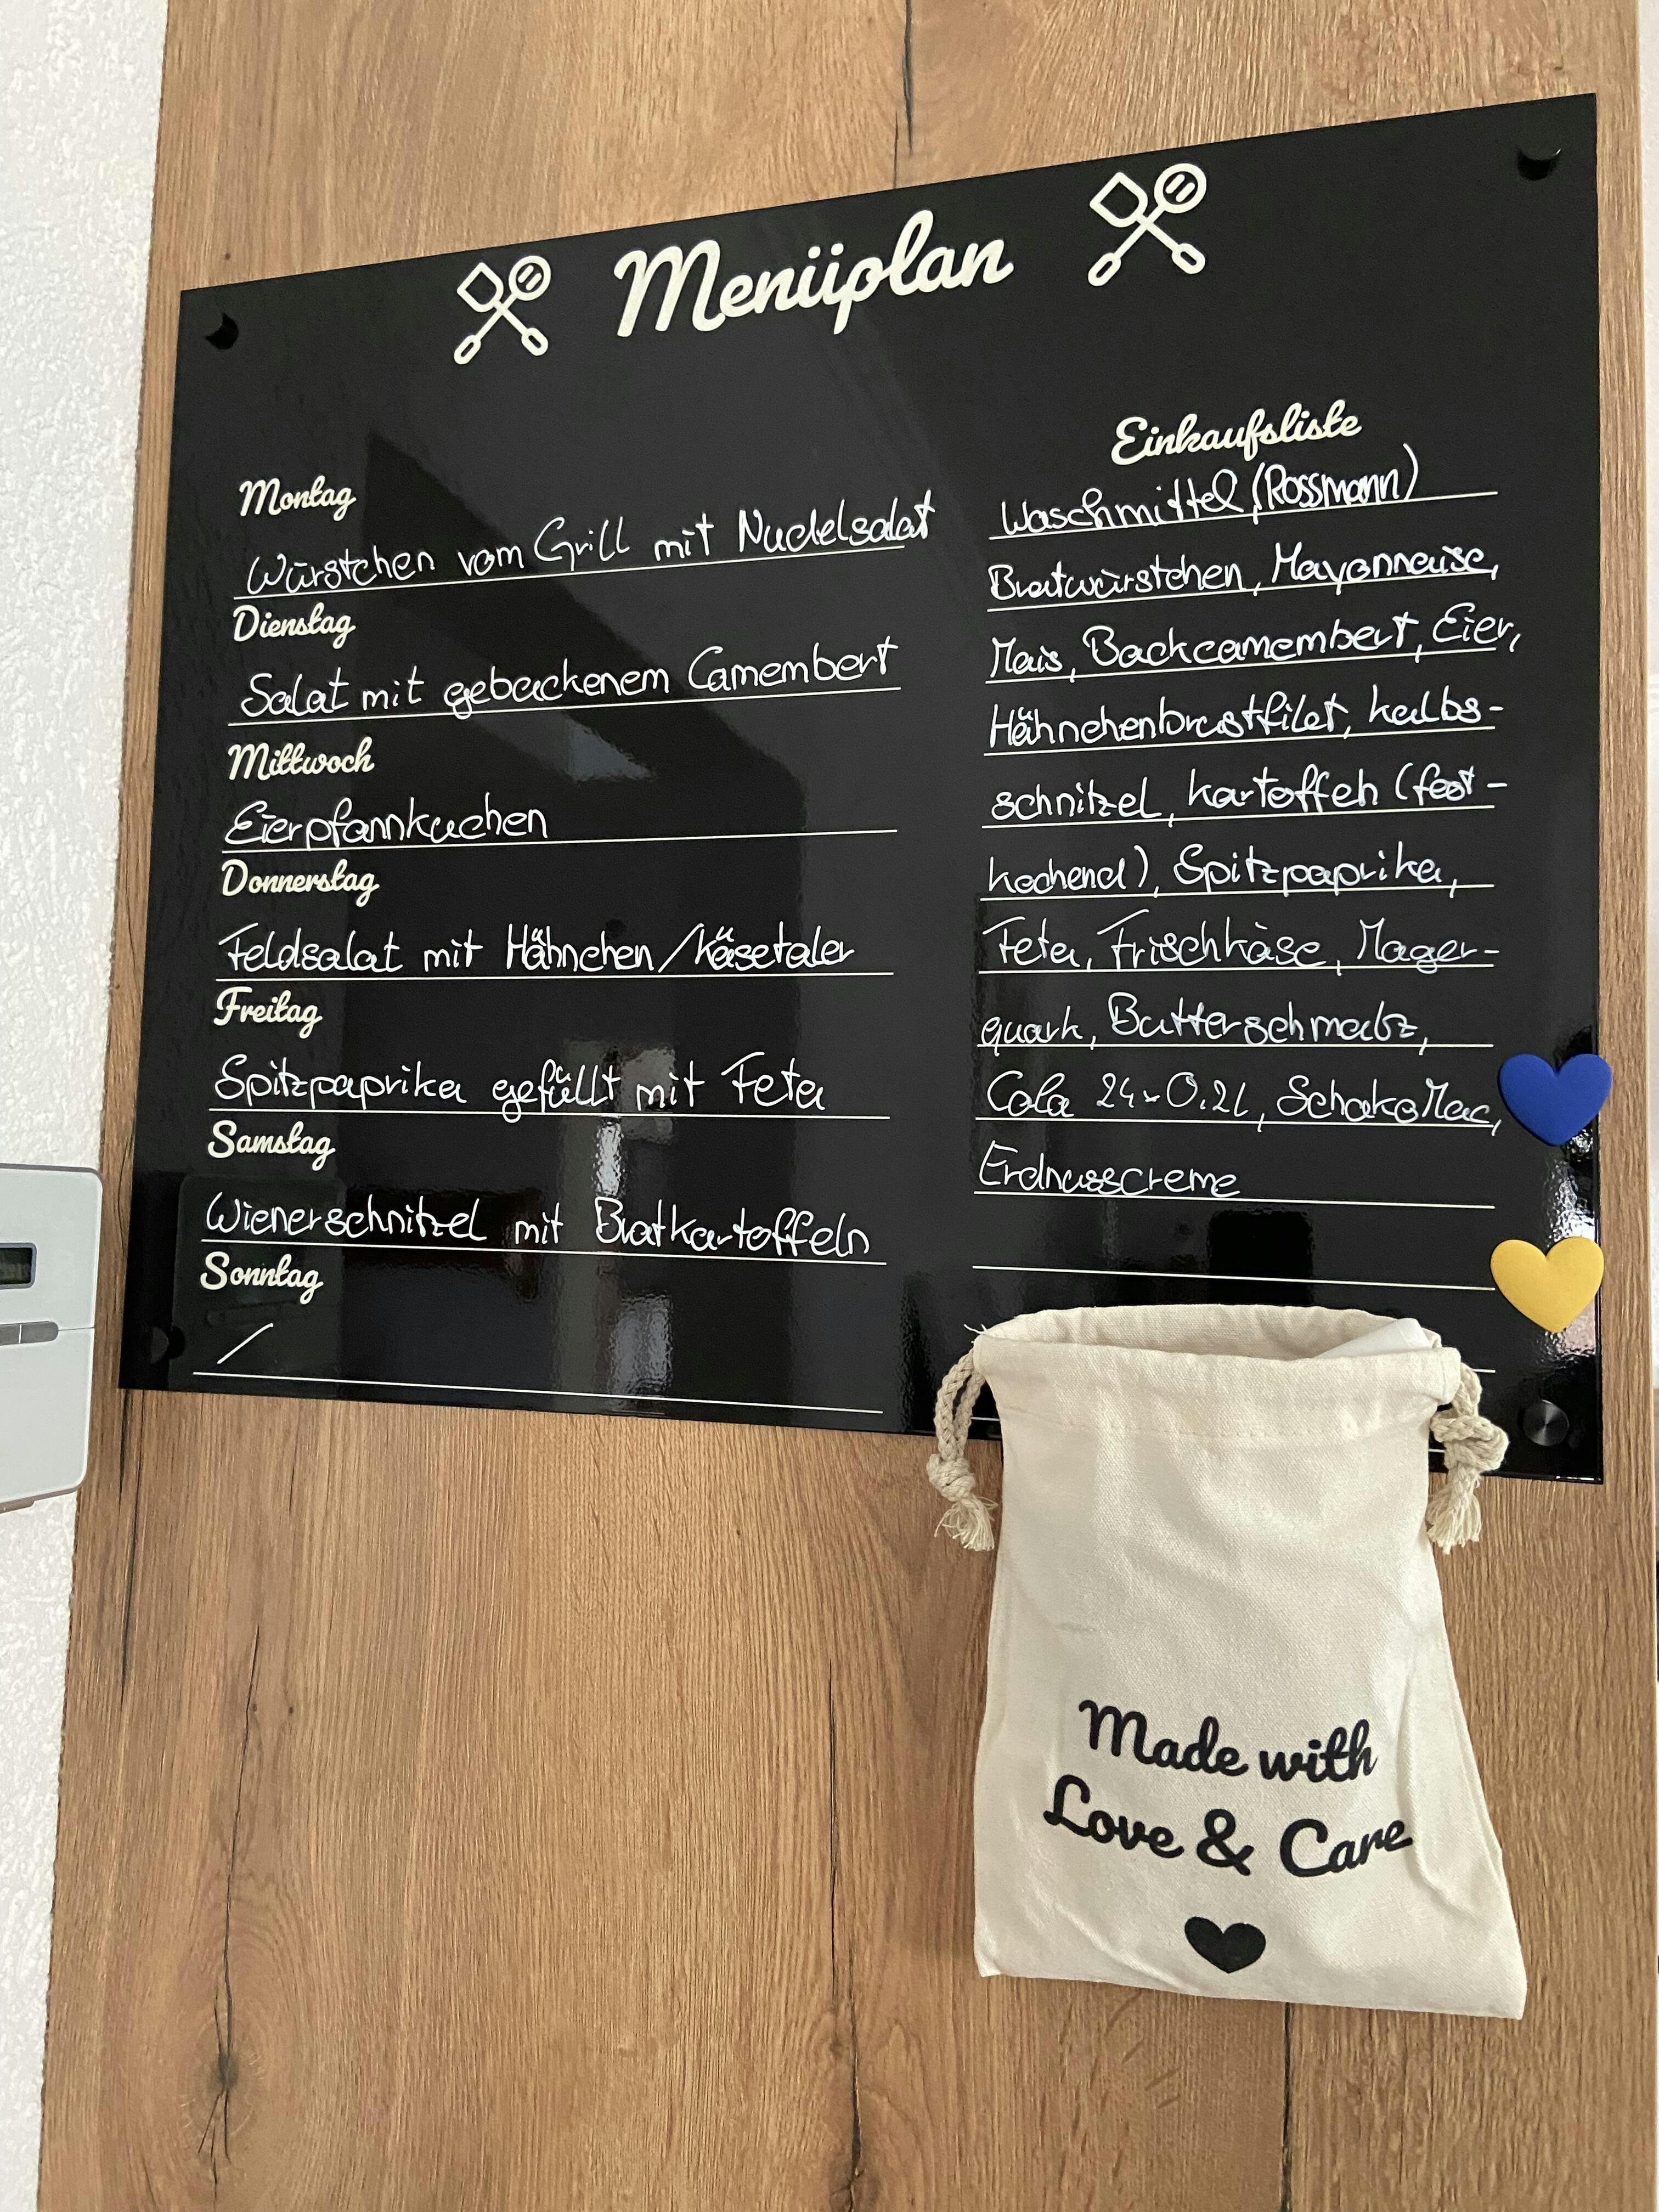 Menüplan
Montag
Würstchen vom Grill mit Nudelsalat
Dienstag
Salat mit gebackenem Camembert
Mittwoch
Eierpfannkuchen
Donnerstag
Feldsalat mit Hähnchen/Käsetaler
Freitag
Spitzpaprika gefüllt mit Feta
Samstag
Wienerschnitzel mit Bratkartoffeln
Sonntag
/
Einkaufsliste
Waschmittel (Rossmann)
Bratwürstchen, Mayonnaise,
Mais, Backcamembert, Eier,
Hähnchenbrustfilet, Kalbs-
schnitzel, Kartoffeln (fest-
kochend), Spitzpaprika,
Feta, Frischkäse, Mager-
quark, Butterschmalz,
Cola 24x0,2l, SchokoMac,
Erdnusscreme
Made with
Love & Care